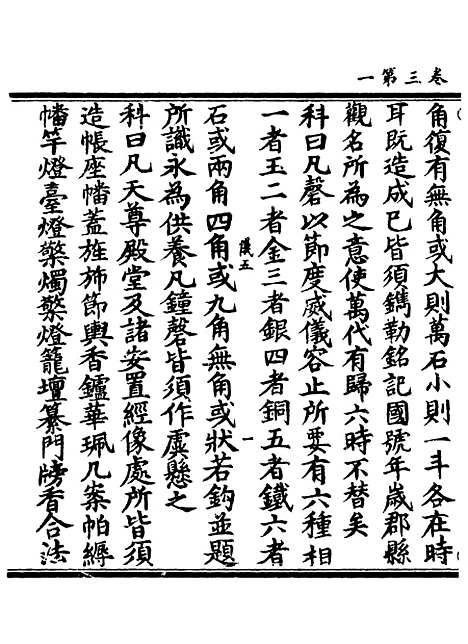 卷三第一
角復有無角或大則萬石小則一斗各在時
耳既造成已皆須鐫勒銘記國號年歲郡縣
觀名所為之意使萬代有歸六時不替矣
科曰凡磬以節度威儀容止所要有六種相
一者玉二者金三者銀四者銅五者鐵六者
石或兩角四角或九角無角或狀若鈎並題
所識永為供養凡鐘磬皆須作虛懸之
科曰凡天尊殿堂及諸安置經像處所皆須
造帳座幡蓋旌斾節輿香鑪華珮几案帕縟
幡竿燈臺燈檠燭檠燈籠壇纂門牓香合法